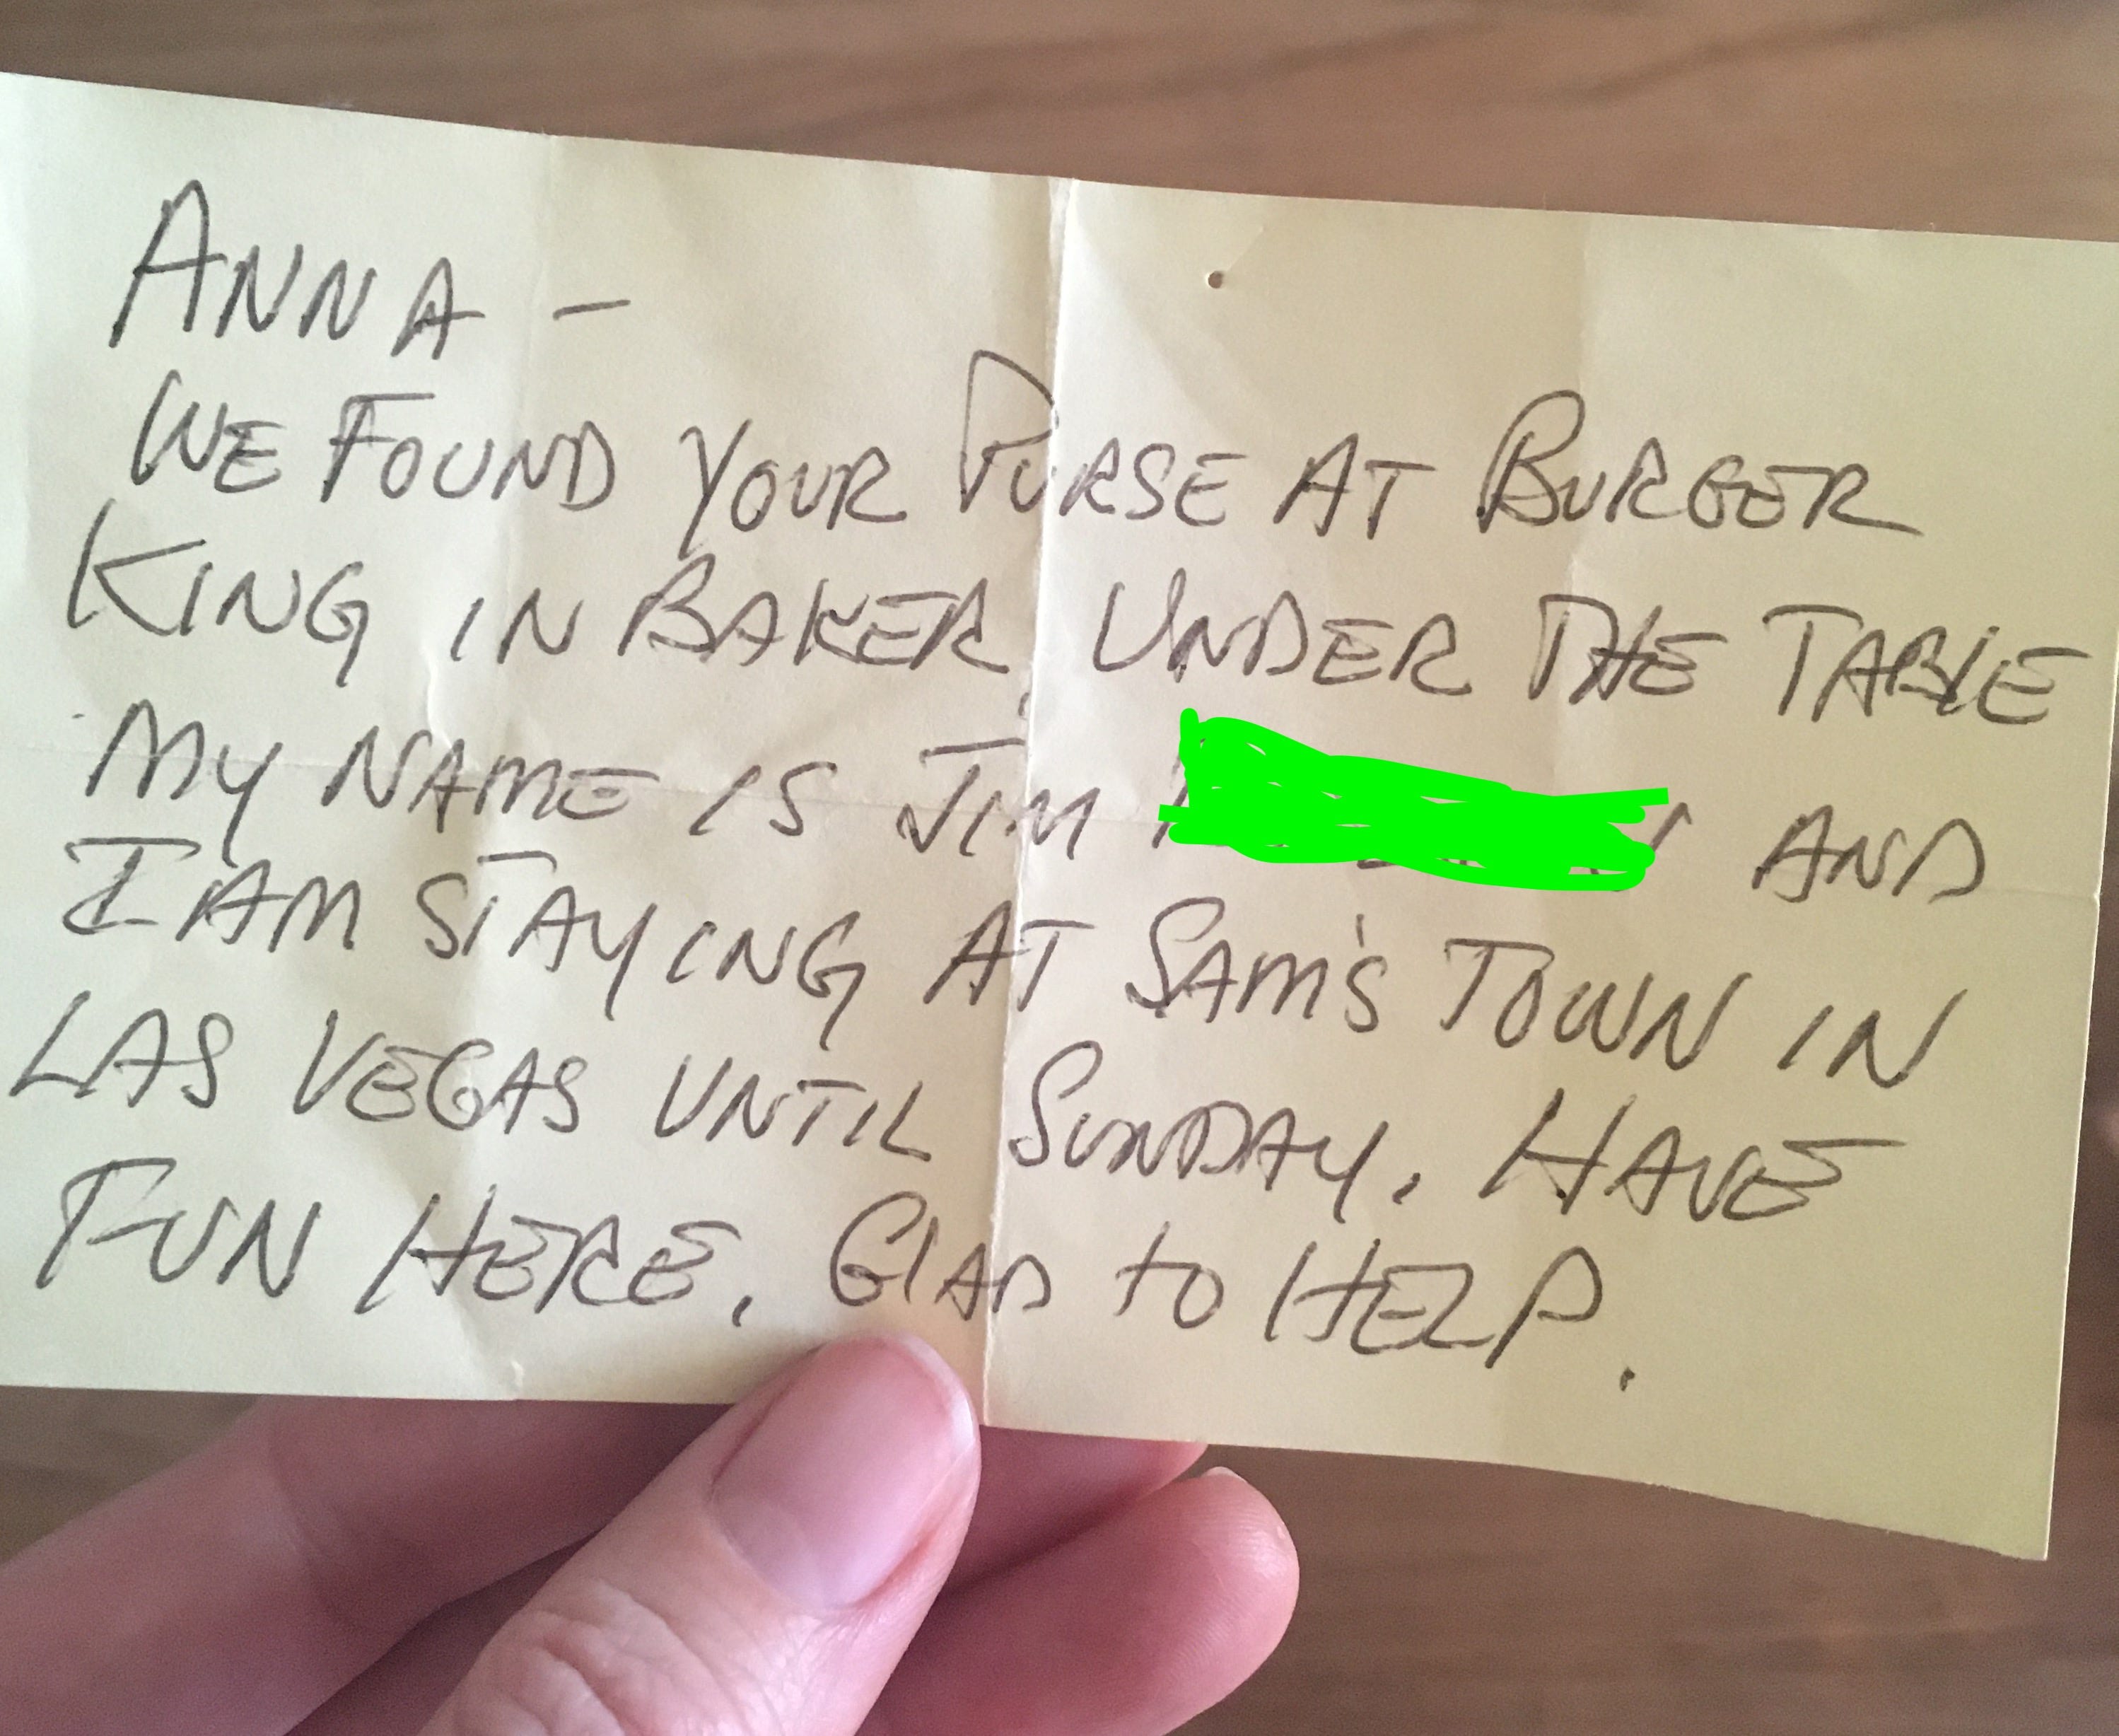 ANNA –
WE FOUND YOUR PURSE AT BURGER
KING IN BAKER, UNDER THE TABLE
MY NAME IS JIM AND
I AM STAYING AT SAM'S TOWN IN
LAS VEGAS UNTIL SUNDAY. HAVE
FUN HERE. GLAD TO HELP.